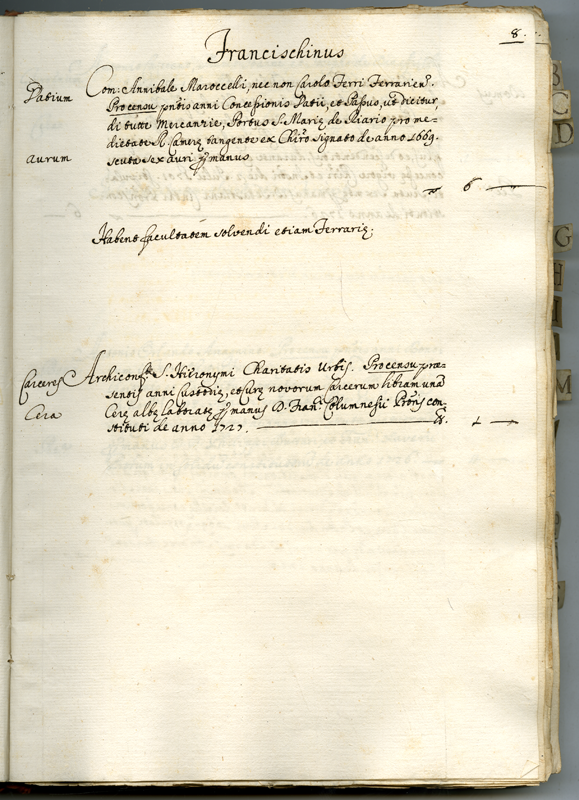 8.
Francischinus
Datium
Com: Annibale Maroccelli, nec non Carolo Ferri Ferrarien.
Pro censu pntis anni Concessionis Datii, et Passuũ, ut dicitur,
di tutte Mercanzie, Portus S. Mariæ de Riario pro me-
dietate R. Cameræ tangente ex Chiro signato de anno 1669.
aurum
scuta sex auri p manus
6
Habent facultatem solvendi etiam Ferrariæ;
Carceres
Archiconf. S. Hieronymi Charitatis Urbis. Pro censu præ-
sentis anni Custodiæ, et Curæ novorum Carcerum libram una
Cera
Ceræ albæ laboratæ p manus D. Fran. Columnesii Ptoris con-
stituti de anno 1727.
1
B
C
D
G
H
I
L
M